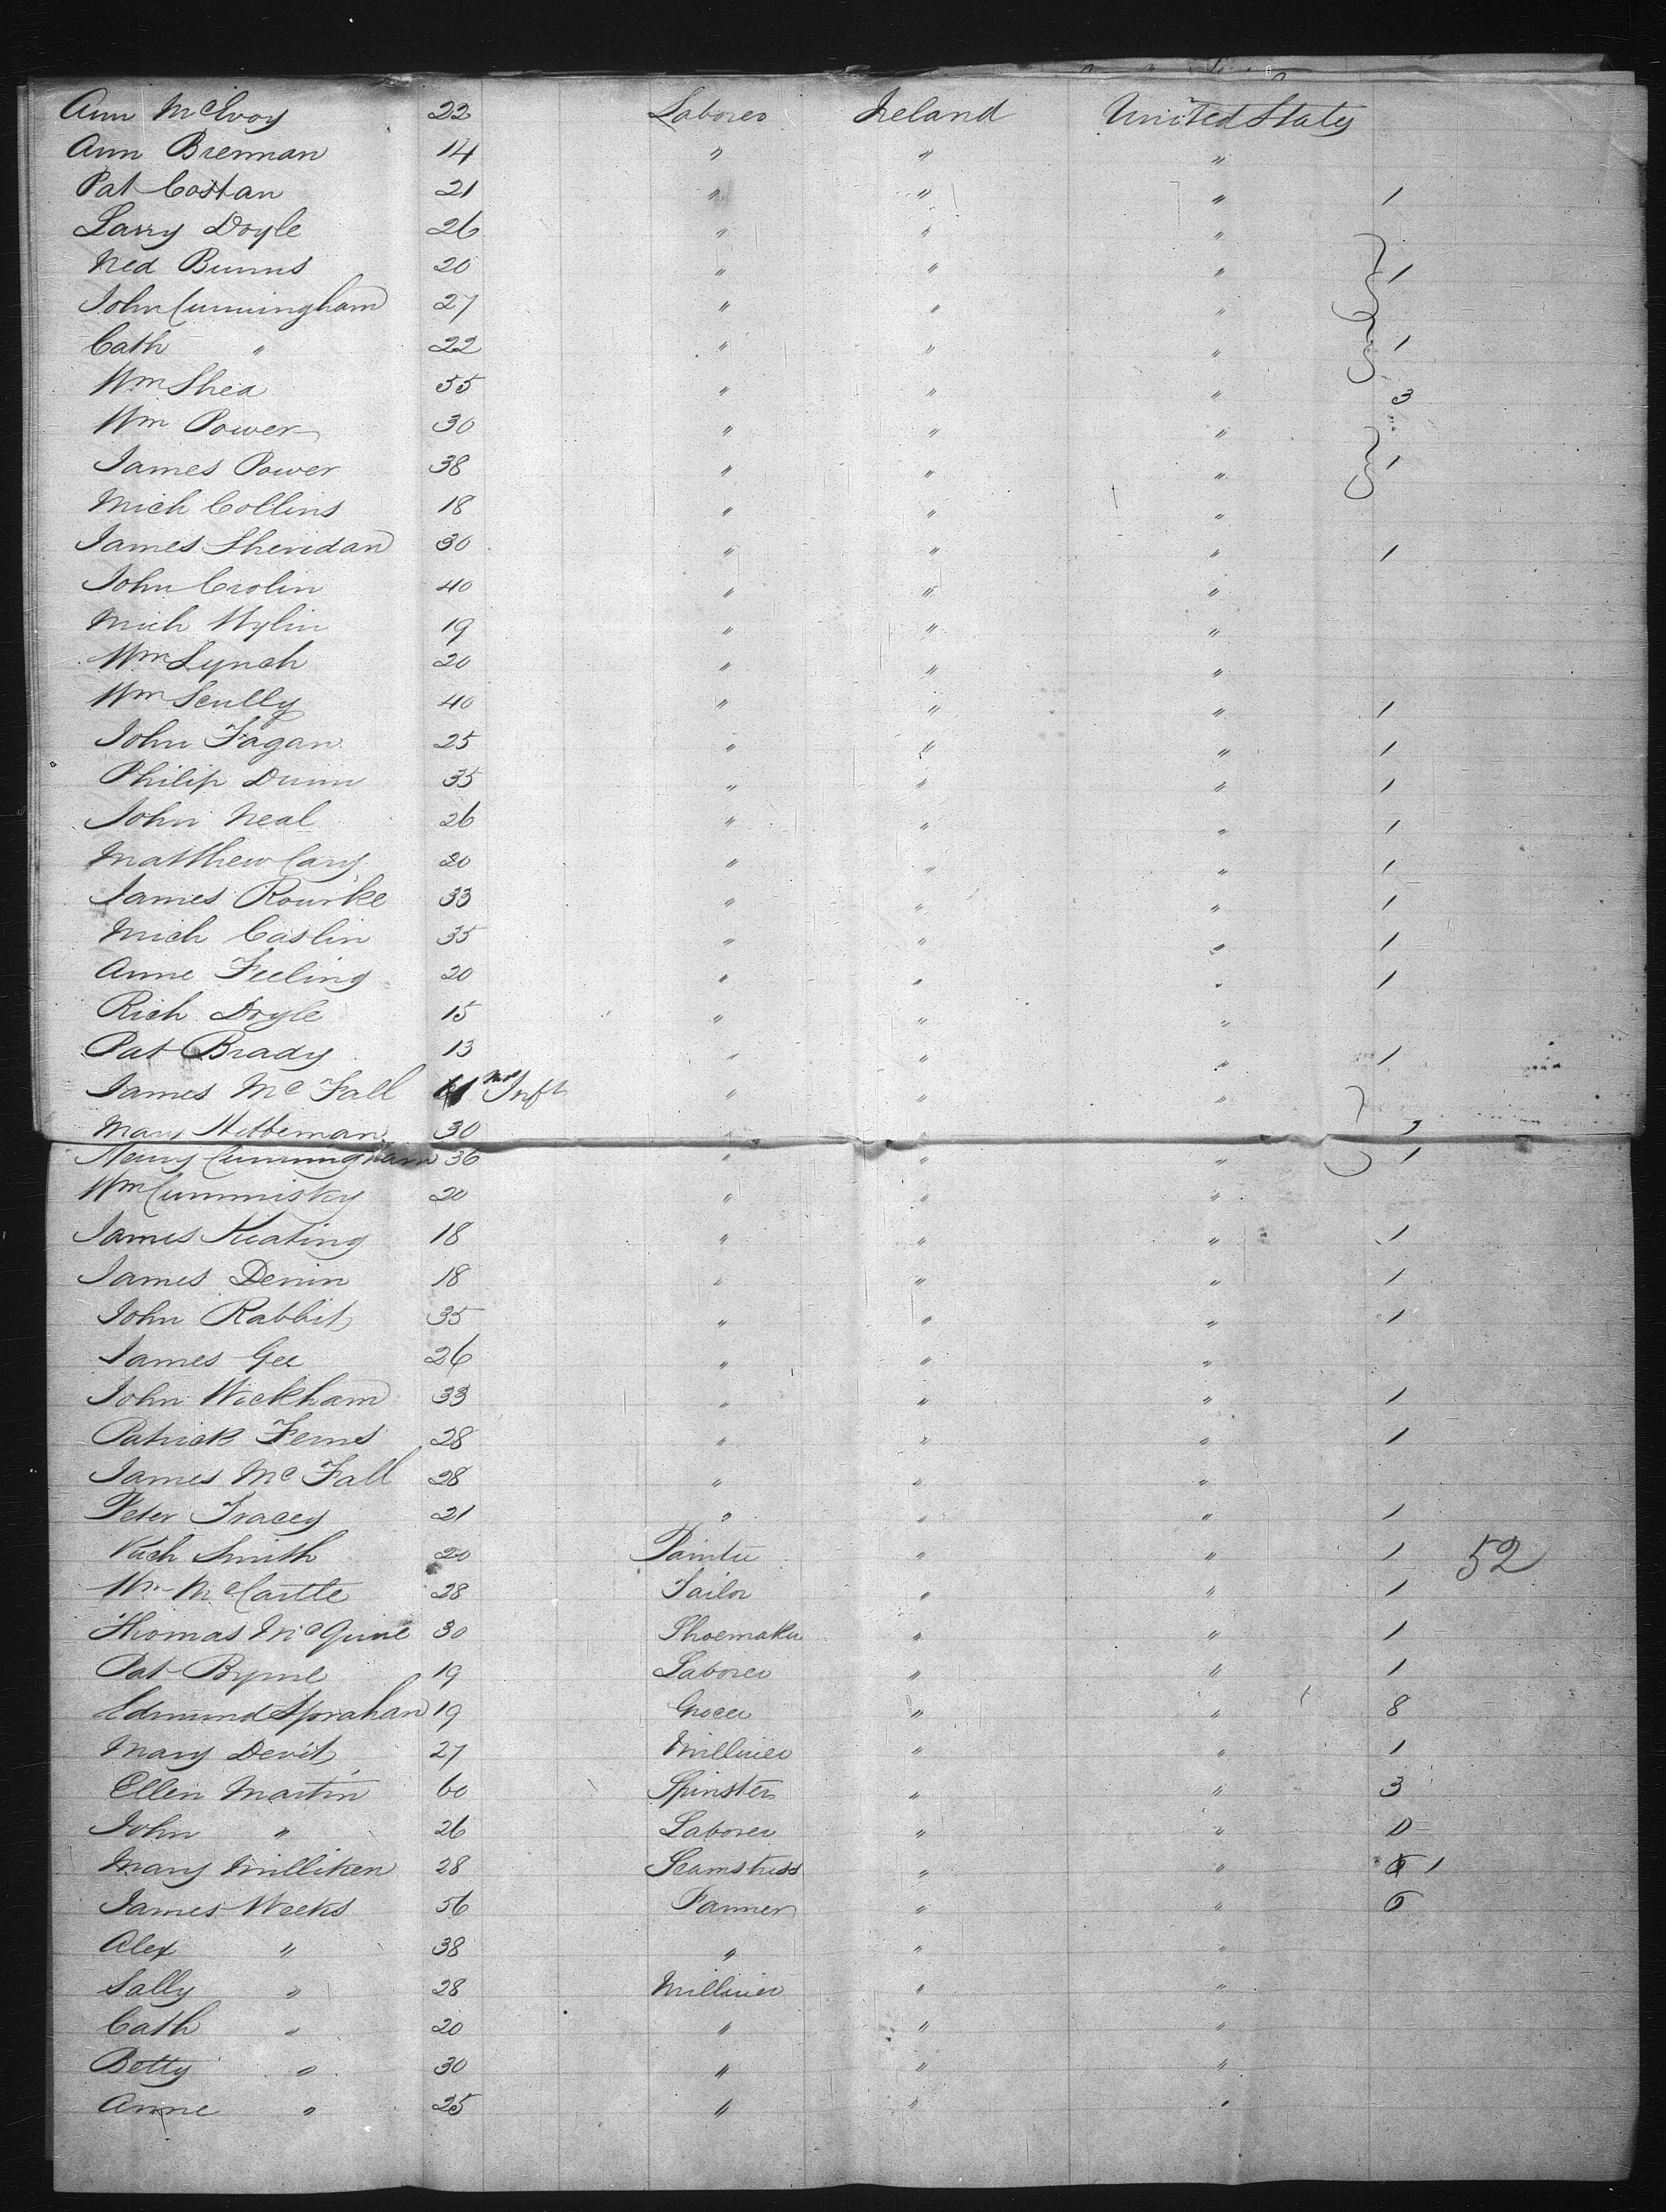 Ann McEvoy 22 Laborer Ireland United States
Ann Brennan 14 " " "
Pat Costan 21 " " " 1
Larry Doyle 26 " " "
Ned Burns 20 " " " 1
John Cunningham 27 " " "
Cath " 22 " " " 1
Wm Shea 55 " " " 3
Wm Power 30 " " "
James Power 38 " " " 1
Mich Collins 18 " " "
James Sheridan 30 " " " 1
John Crolin 40 " " "
Mich Wylin 19 " " "
Wm Lynch 20 " " "
Wm Scully 40 " " " 1
John Fagan 25 " " " 1
Philip Dunn 35 " " " 1
John Neal 26 " " " 1
Matthew Cary 20 " " " 1
James Rourke 33 " " " 1
Mich Caslin 35 " " " 1
Anne Feeling 20 " " " 1
Rich Doyle 15 " " "
Pat Brady 13 " " " 1
James McFall 11 mos Inft " " "
Mary 30
Cunningham 36 " " " 1
Wm Cummisky 20 " " "
James Keating 18 " " " 1
James Denin 18 " " " 1
John Rabbit 35 " " " 1
James Gee 26 " " "
John Wickham 33 " " " 1
Patrick Ferns 28 " " " 1
James McFall 28 " " "
Peter Tracey 21 " " " 1
Rich Smith 20 Painter " " 1 52
Wm McCartle 28 Tailor " " 1
Thomas McGuire 30 Shoemaker " " 1
Pat Byrne 19 Laborer " " 1
Edmund 19 Grocer " " 8
Mary Devit 27 Milliner " " 1
Ellen Martin 60 Spinster " " 3
John " 26 Laborer " " 0
Mary Milliken 28 Seamstress " " 1
James Weeks 56 Farmer " " 6
Alex " 38 " " "
Sally " 28 Milliner " "
Cath " 20 " " "
Betty " 30 " " "
Anne " 25 " " "